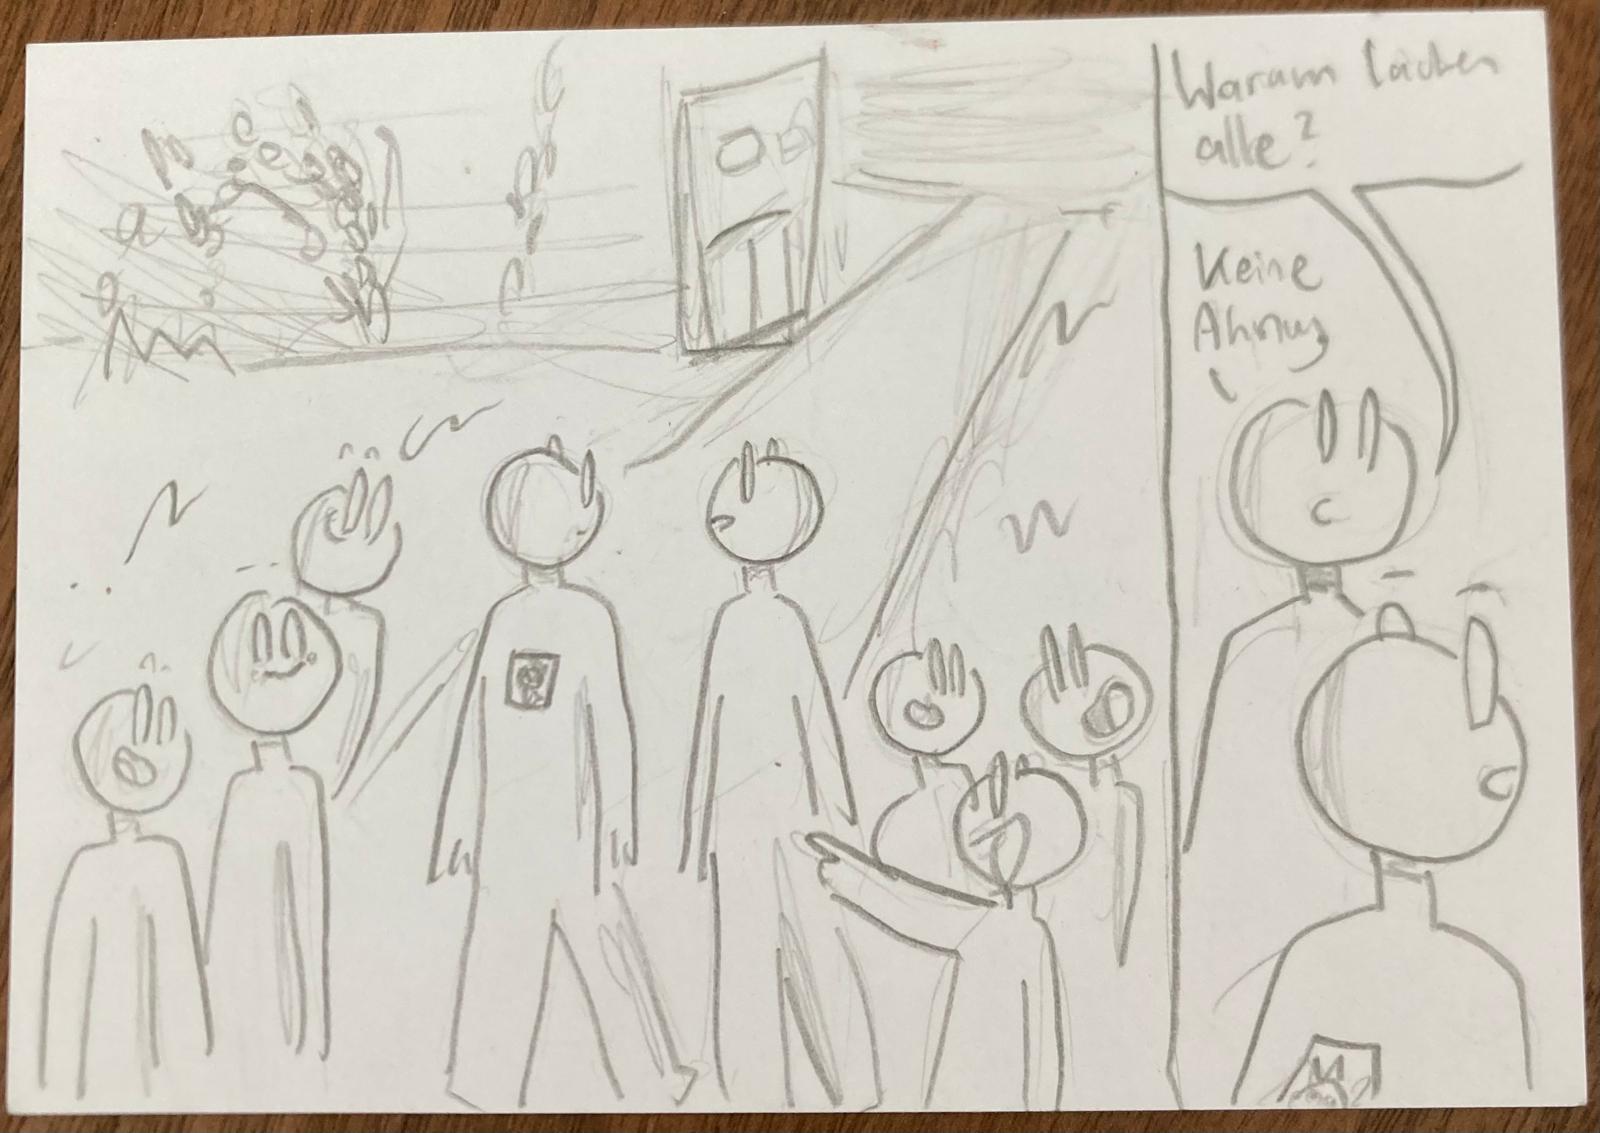 Warum lachen
alle?
Keine
Ahnung